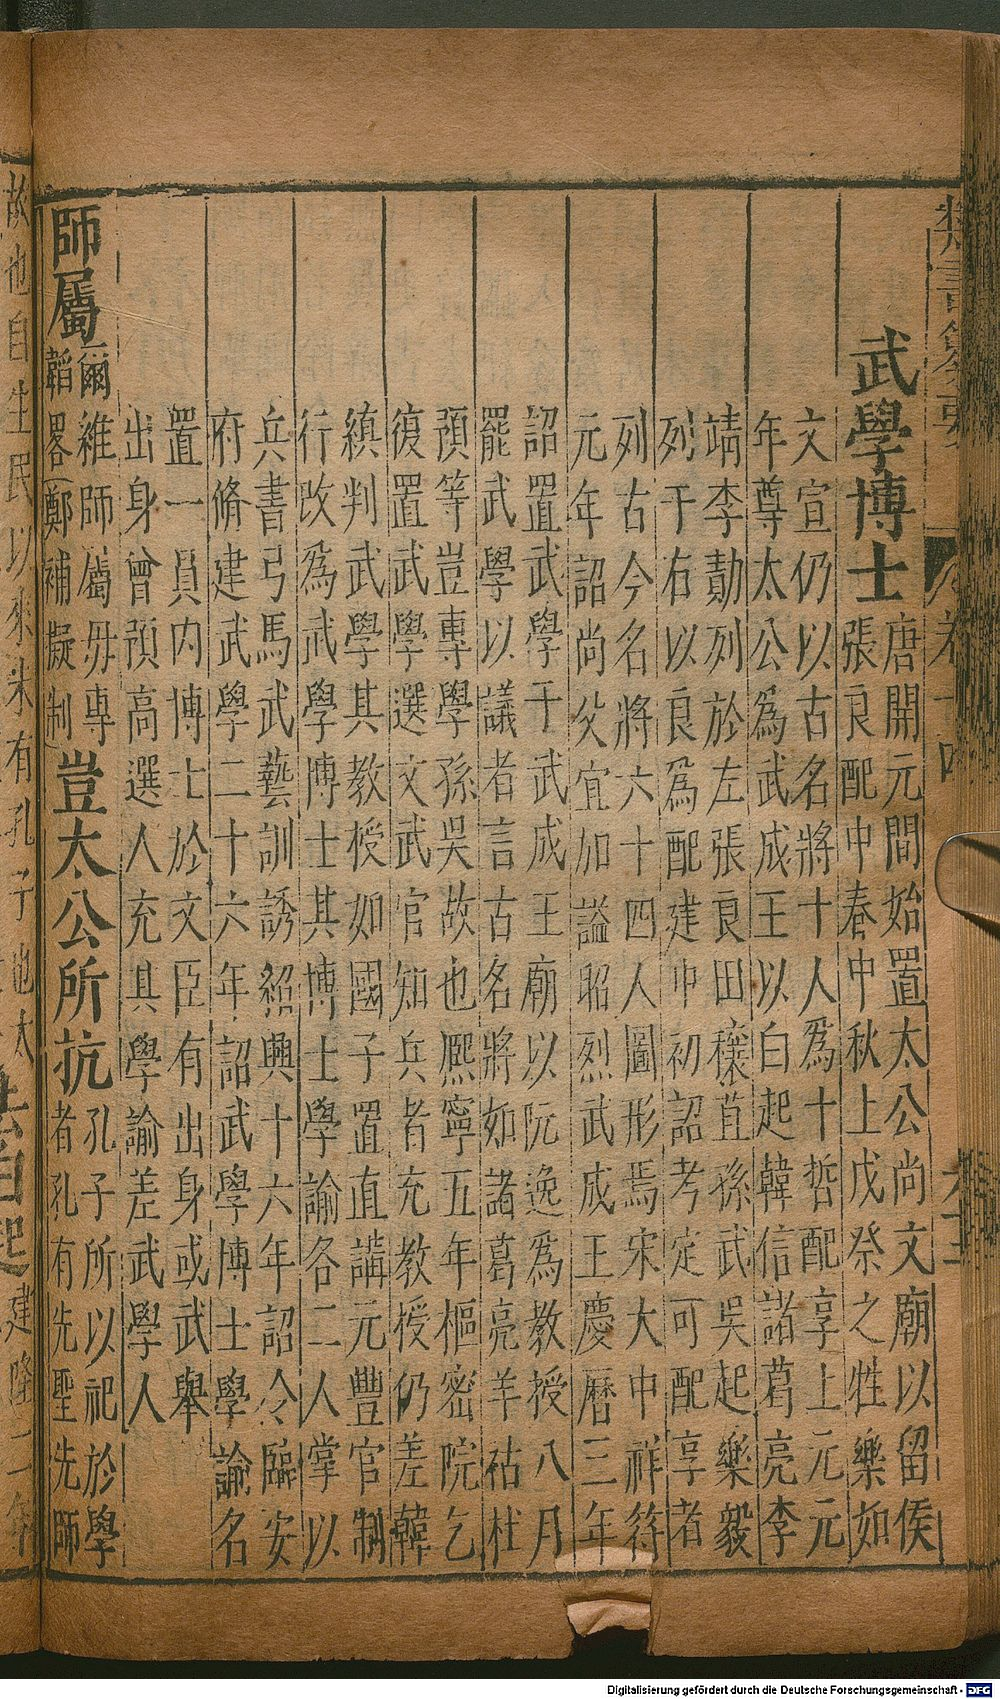 武學博士
唐開元間始置太公尚文廟以留侯
張良配中春中秋上戊祭之牲樂如
文宣仍以古名將十人爲十哲配享上元元
年尊太公爲武成王以白起韓信諸葛亮李
靖李勣列於左張良田穰苴孫武吳起樂毅
列于右以良爲配建中初詔考定可配享者
列古今名將六十四人圖形焉宋大中祥符
元年詔尚父宜加謚昭烈武成王慶曆三年
詔置武學于武成王廟以阮逸爲教授八月
罷武學以議者言古名將如諸葛亮羊祜杜
預等豈專學孫吳故也熈寧五年樞密院乞
復置武學選文武官知兵者充教授仍差韓
縝判武學其教授如國子置直講元豐官制
行改爲武學博士其博士學諭各二人掌以
兵書弓馬武藝訓誘紹興十六年詔令臨安
府脩建武學二十六年詔武學博士學諭名
置一員内博士於文臣有出身或武舉
出身曾預高選人充其學諭差武學人
師屬
爾雅師屬毋專
韜畧鄭補擬制
豈太公所抗
孔子所以祀於學
者孔有先聖先師
故也自生民以來未有孔子也太
建隆二年
Digitalisierung gefördert durch die Deutsche Forschungsgemeinschaft - DFG